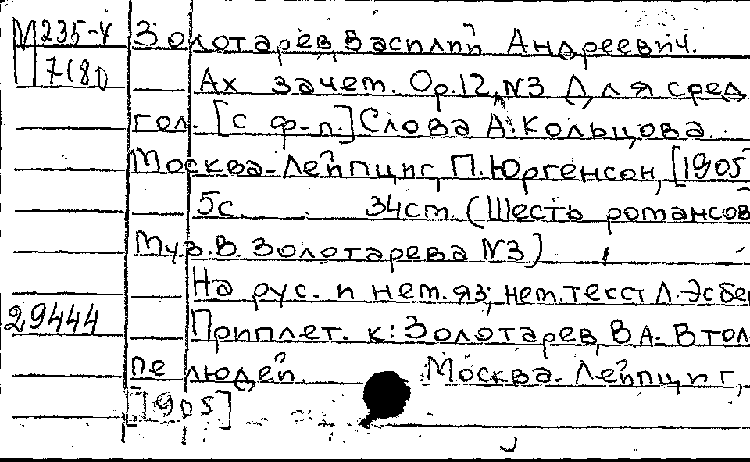 М235-4 Золотарев, Василий Андреевич.
7180 Ах зачем. Ор.12, N3 Для сред
гол. [с ф-п.] Слова А. Кольцова.
Москва-Лейпциг, П. Юргенсон, [1905
5с. 34см. (Шесть романсов
Муз. В. Золотарева N3)
На рус. и нем. яз; нем. текст Л. Эсбе
29444 Приплет. к: Золотарев, В А. В тол
пе людей. Москва-Лейпциг,
[1905]